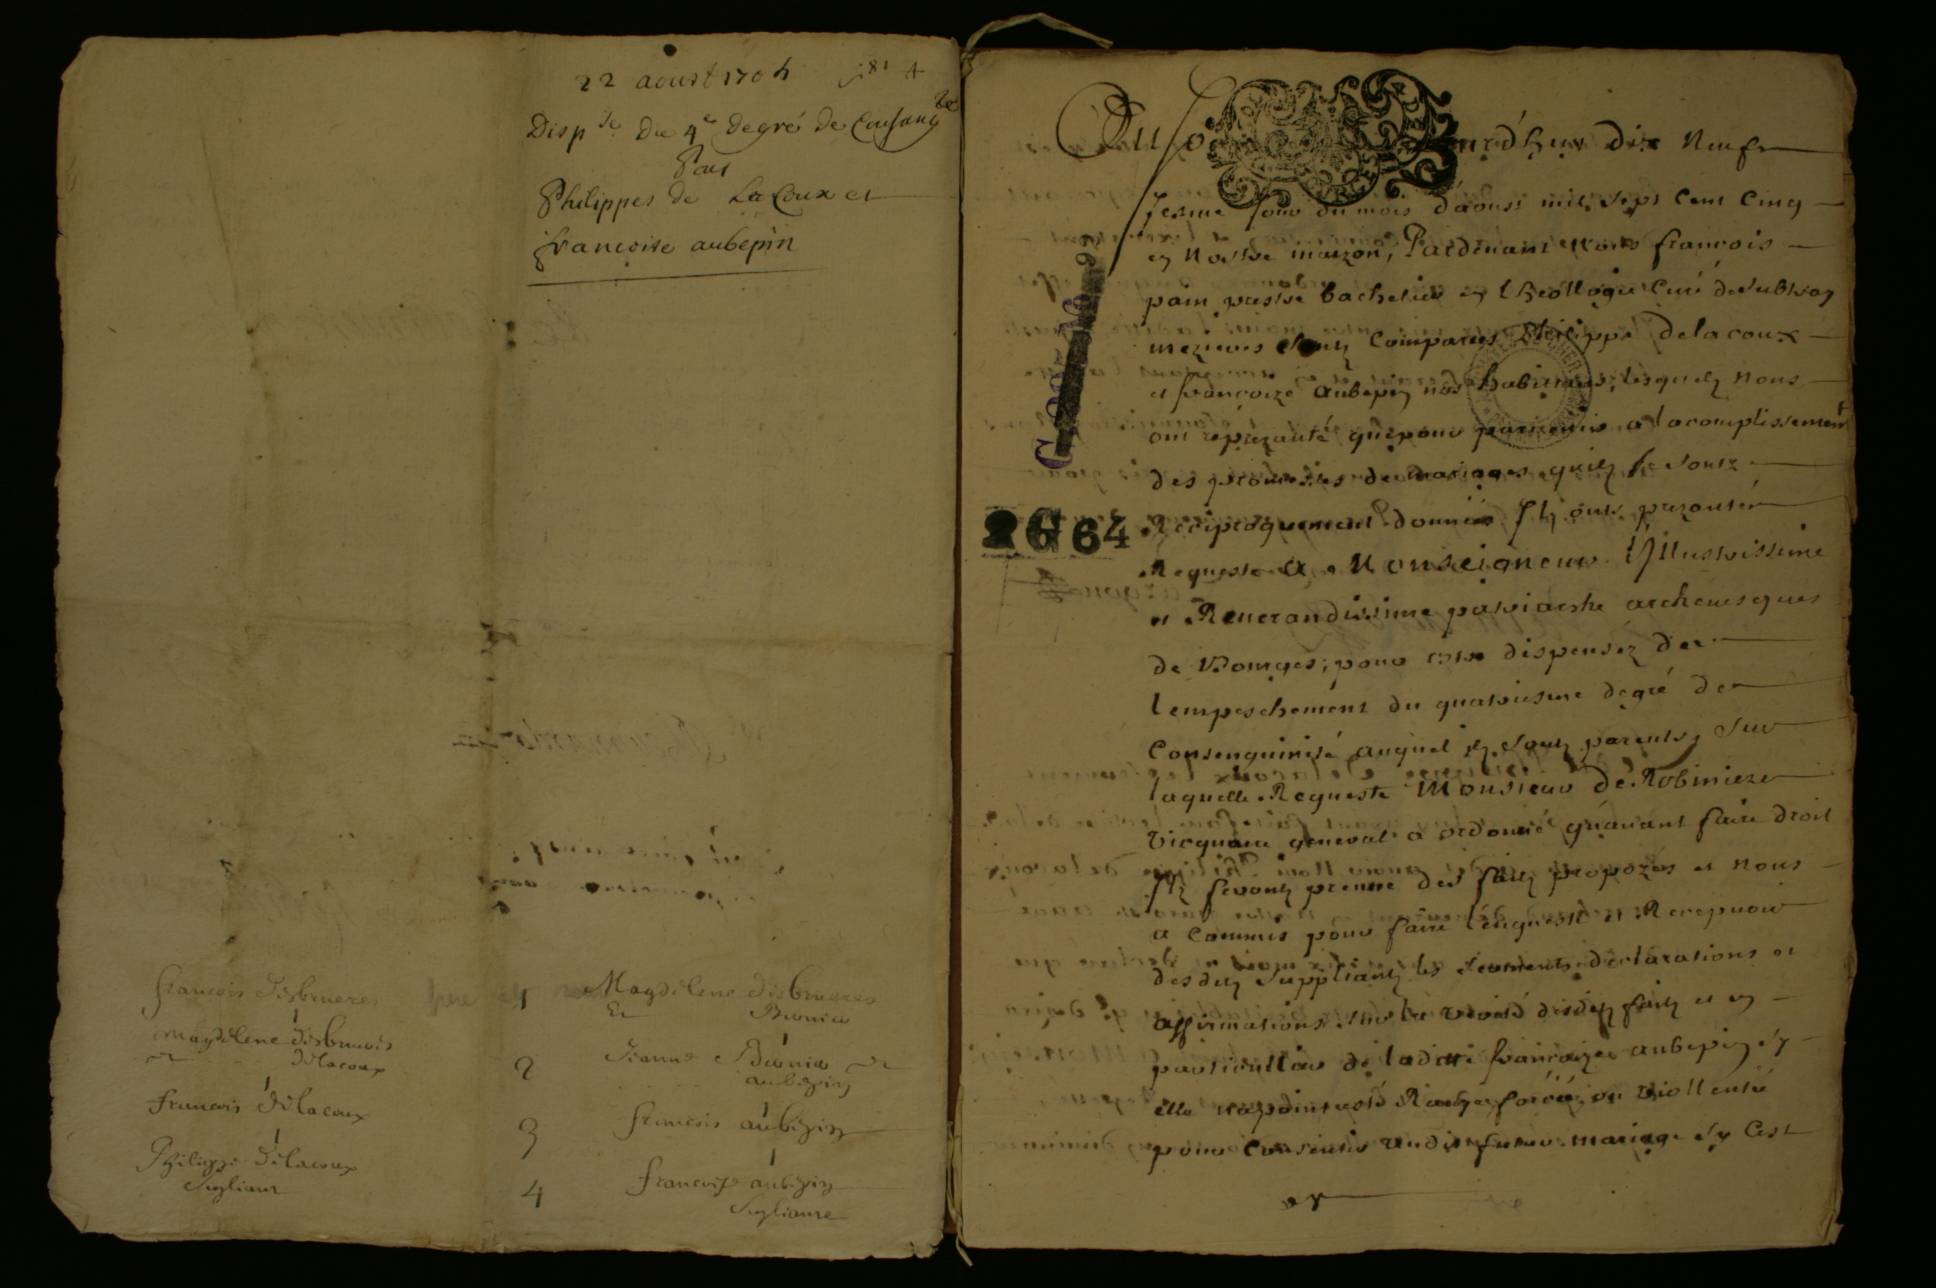 22 aoust 1704
Disp.se Du 4e degré de Consang.té
Par
Philippes de LaCoux et
françoise aubepin
francois desbrueres
Magdelene desbrueres
et Brunier
1
magdelene desbrueres
et delacoux
2
Jeanne Brunier et
aubepin
francois delacoux
3
francois aubepin
Philippe delacoux
supliant
4
francoise aubepin
supliante
Aujourdhuy dix neuf
iesme Jour du mois daoust mil sept cent cinq
en nostre maizon, Pardevant Nous francois
pain prestre bachelier en theollogie Curé de
mezieres sont Comparus Philippe delacoux
et francoize aubepin nos habitans, lesquelz nous
ont reprezanté que pour parvenir a lacomplissement
des promesses de mariages quilz se sont
Reciproquement donnés Ilz ont prezanté
Requeste A Monseigneur Illustrissime
et Reverandissime patriarche archevesques
de Bourges, pour estre dispenséz de
lempeschement du quatriesme degré de
Consenguinité auquel ilz sont parents, Sur
laquelle Requeste Monsieur de Robinieze
Vicquaire general a ordonné quavant faire droit
Ilz feront preuve des faitz propozés et nous
a Commis pour faire lenqueste et Recepvoir
desditz Suppliantz les serments declarations et
affirmations sur la verité desditz faitz et en
particullier de laditte francoize aubepin sy
elle na point esté forcée ou viollentée
pour Consentir audit futur mariage sy Cest
2G64